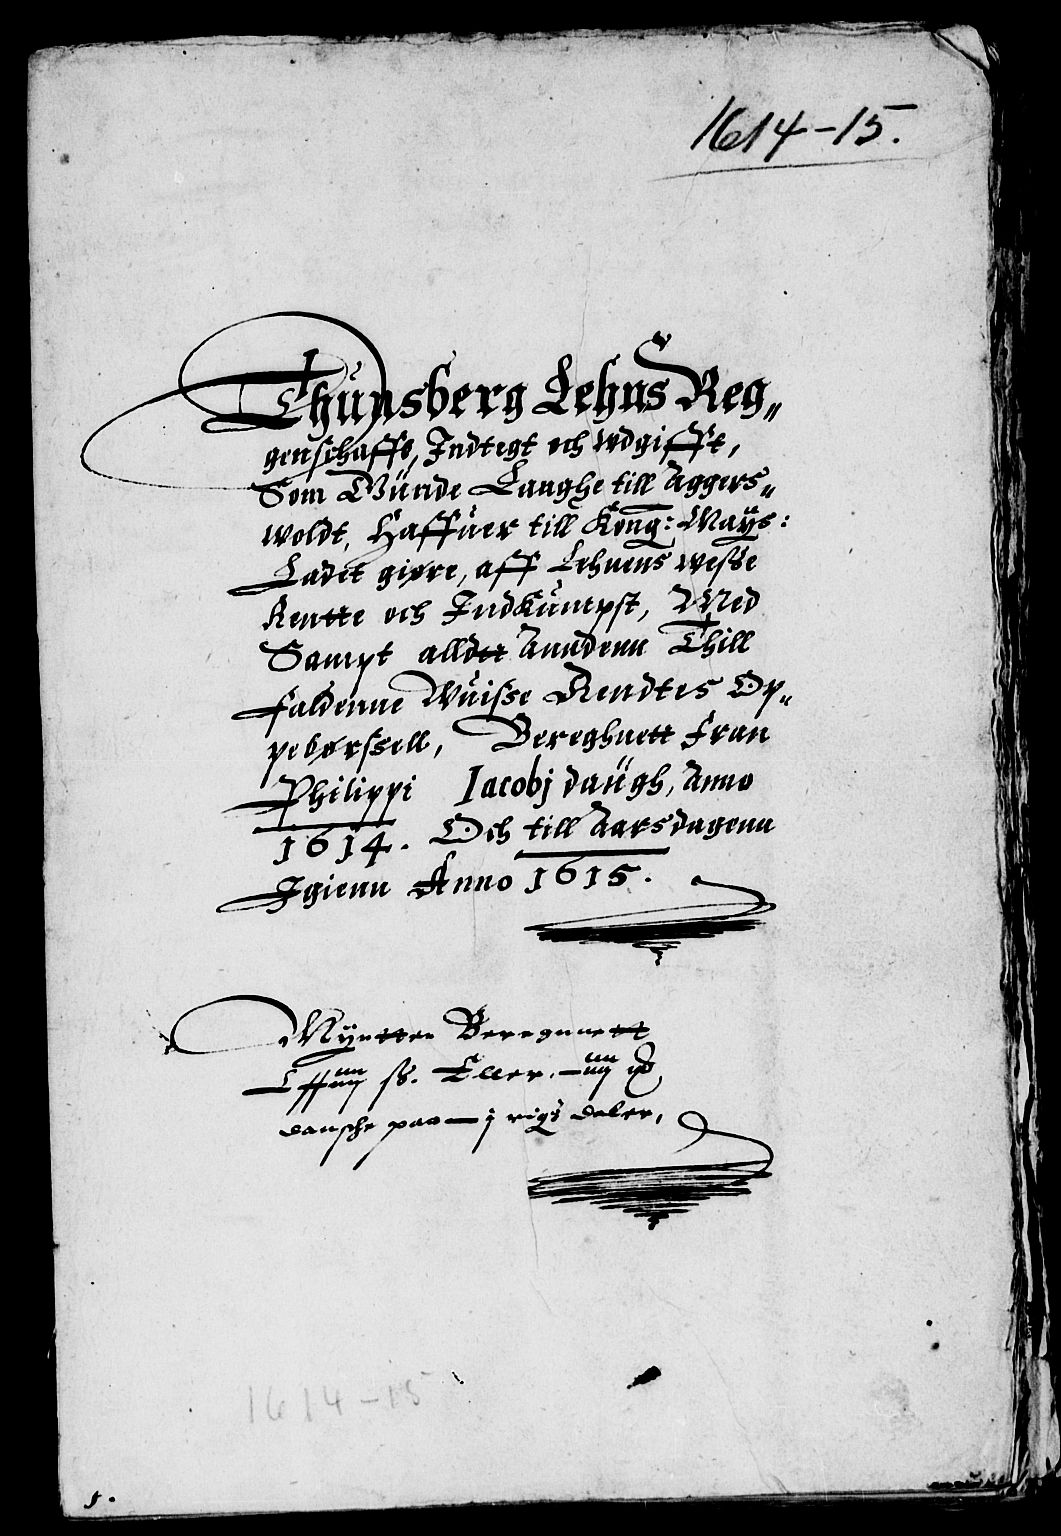 1614-15.
Thünsberg Lehns Reg„
genschaffs, Indtegt och wdgifft,
Som Günde Langhe till Aggers„
woldt, Haffüer till Kong: Mays:
Ladet giøre, aff Lehnens wesse
Rentte och Indkumpst, Med
Sampt alldtt Anndenn Thill
faldenne Wuisse Rendtes Op„
pebørssell, Bereghnett Fran
Philippi Jacobj daügh, Anno
1614. Och till Aarsdagenn
Igienn Anno 1615.
Myntten Beregnnett
ß. Eller
dansche paa j rigs daler,
1614-15
1.